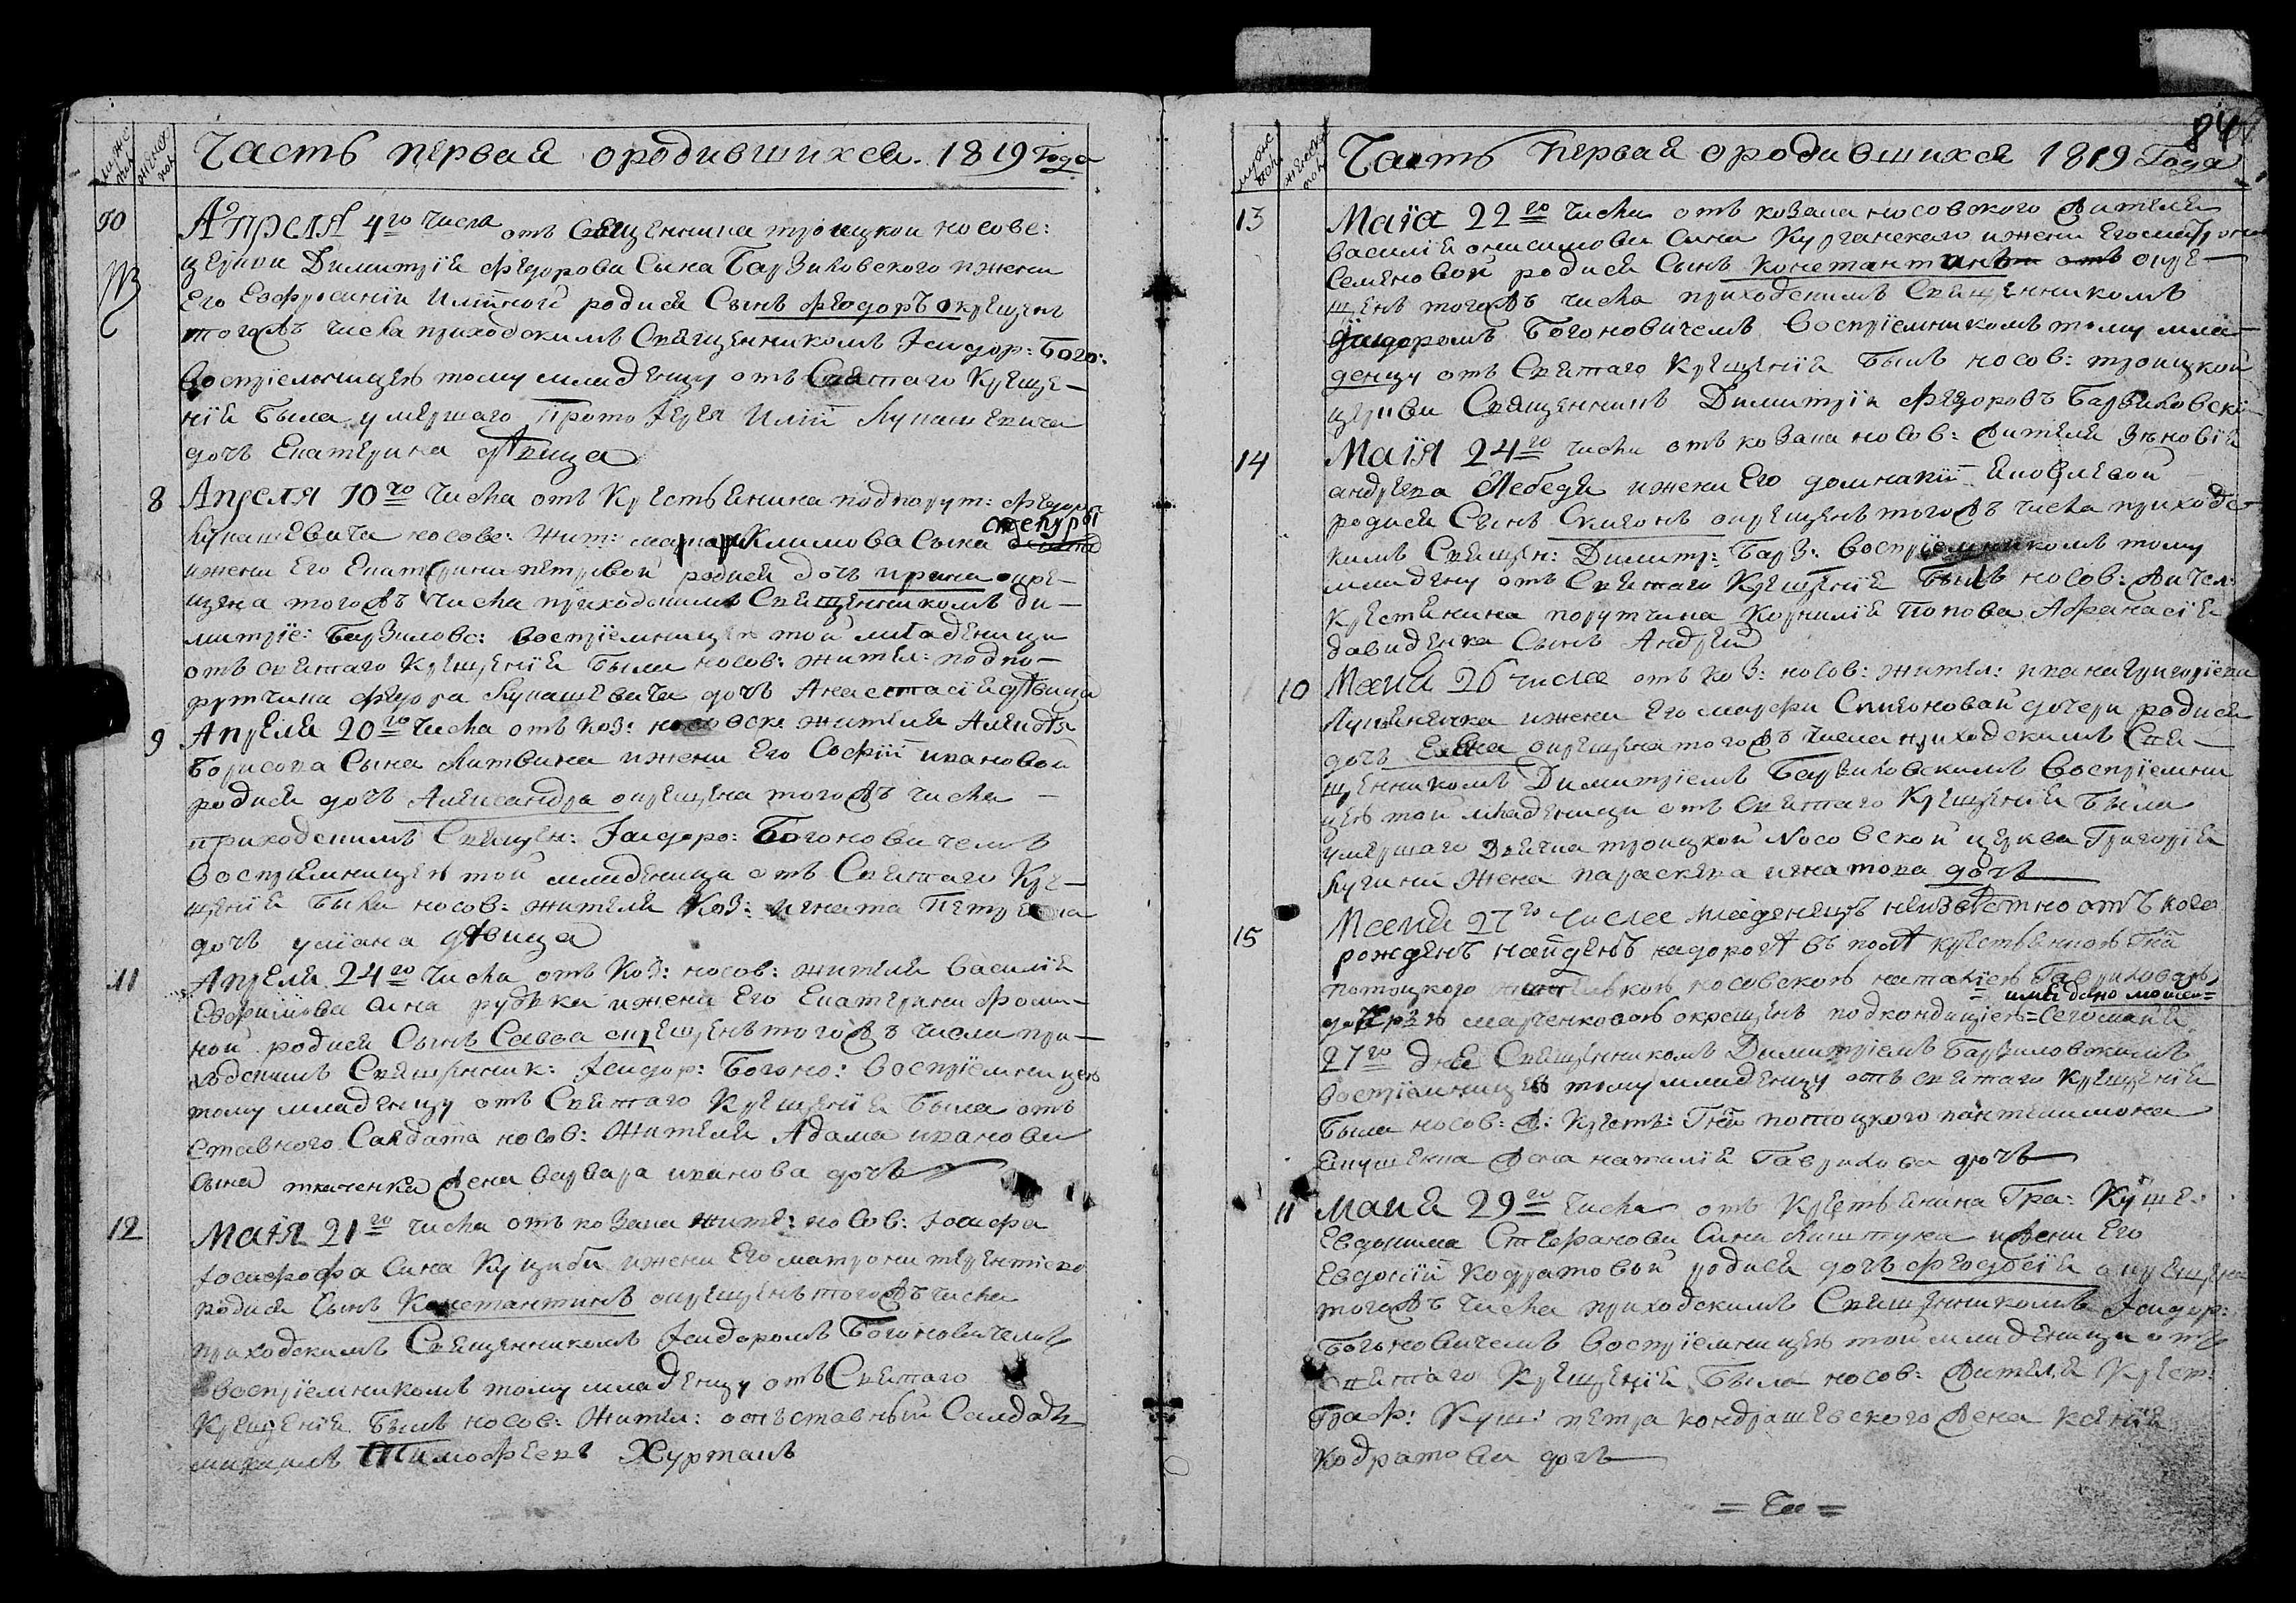 мужес пол
женск пол
Часть первая ородившихся. 1819 Года
10 Апреля 4го числа отъ Священника троицкои носовс:
церкви Димитрія Федорова Сына Базиловского ижени
Его Евфросиніи Иліиной родися Сынъ Феодоръ окрещенъ
тогожъ числа приходскимъ Священникомъ Ісидор: Бого:
Воспріемницею тому младенцу отъ Святаго Креще-
нія была умершаго ПротоІерея Иліи Лукашевича
дочъ Екатерина дѣвица
8 Апреля 10го числа отъ Крестьянина подпорут: Федора
Лукашевича носовс: жит: Климова Сына
ижени Его Екатерини петровой родися дочъ ирина окре-
щена тогожъ числа приходскимъ Священникомъ ди-
митріе: Базиловс: воспріемницею той младеници
отъ святаго Крещенія была носов: жител: подпо-
ручика Федора Лукашевича дочъ Анастасія дѣвица
9 Апреля 20го числа отъ коз: носовск жителя
Борисова Сына Литвина ижени Его Софіи ивановой
родися дочъ Александра окрещена тогожъ числа —
приходскимъ Священ: Ісидоро: Богоновичемъ
воспріемницею той младеница отъ Святаго Кре-
щенія была носов: жителя Коз: игната Петренка
дочъ уліана дѣвица
11 Апреля 24го числа отъ Коз: носов: жителя Василія
Евфимова сина ижени Его Екатерини Фоми-
ной родися Сынъ Савва окрещенъ тогожъ числа при-
ходскимъ Священник: Ісидор: Богоно: воспріемницею
тому младенцу отъ Святаго Крещенія была отъ
ставного Салдата носов: Жителя Адама иванови
сына ткаченка жена варвара иванова дочъ
12 Маія 21го числа отъ козака жите: носов: Іосифа
Іосифофа Сина Куциби ижени Его матрони терентіево
родися Сынъ Константинъ окрещенъ тогожъ числа
приходскимъ Священникомъ Ісидоромъ Богоновичемъ
воспріемникомъ тому младенцу отъ Святаго
Крещенія былъ носов: Жител: отъставный Салдатъ
михаилъ Тимофеевъ Хурманъ
84
мужес пол
женск пол
Часть первая ородившихся 1819 Года
13 Маіа 22го числа отъ козака носовского жителя
василія онисимови Сина Курганского ижени Его
Семеновой родися Сынъ Константинъ отъ окре-
щенъ тогожъ числа приходскимъ Священникомъ
Ісидоромъ Богоновичемъ воспріемникомъ тому мла-
денцу отъ Святаго Крещенія былъ носов: троицкой
церкви Священникъ Димитрій Федоровъ Базиловскі
14 Маія 24го числа отъ козака носов: жителя зѣновія
андреева Лебедя ижени Его домникіи Яковлевой
родися Сынъ Симонъ окрещенъ тогожъ числа приходс-
кимъ Священ: Димитр: Баз: воспріемникомъ тому
младенцу отъ Святаго Крещенія былъ носов: жител:
Крестянина порутчика Корнилія Попова Афанасія
давиденка Сынъ Андрей
10 Маиа 26 числа отъ коз: носов: жител: ивана григоріева
ижени Его марфи Симоновой дочери родися
дочъ Елена окрещена тогожъ числа приходскимъ Свя-
щенникомъ Димитріемъ Базиловскимъ воспріемни
цею той младеници отъ Святаго Крещенія была
умершаго Дячка троицкой Носовской церква Григорія
жена параскева игнатова дочъ
15 Маиа 27го числа младенецъ неизвѣстно отъ кого
рожденъ найденъ надорогѣ въ полѣ крестянкою Гна
потоцкого жителькою носовскою наталіею Гавриловою
имя дано моисе=
дочерью марченковою окрещенъ подкондиціею=сегомаиа
27го дня Священникомъ Димитріемъ Базиловскимъ
воспріемницею тому младенцу отъ святаго Крещенія
была носов: ж: Крест: Гна потоцкого пантелимона
жена наталія Гаврилова дочъ
11 Маиа 29го числа отъ Крестьянина Гра: Куше:
Евдокима Стефанови Сина ижени Его
Евдокіи кодратовой родися дочъ Феодосія окрещена
тогожъ числа приходскимъ Священникомъ Ісидор:
Богоновичемъ воспріемницею той младеници отъ
святаго Крещенія была носов: жителя Крест:
Граф: Куш: петра кондрашевского жена ксенія
Кодратова дочъ